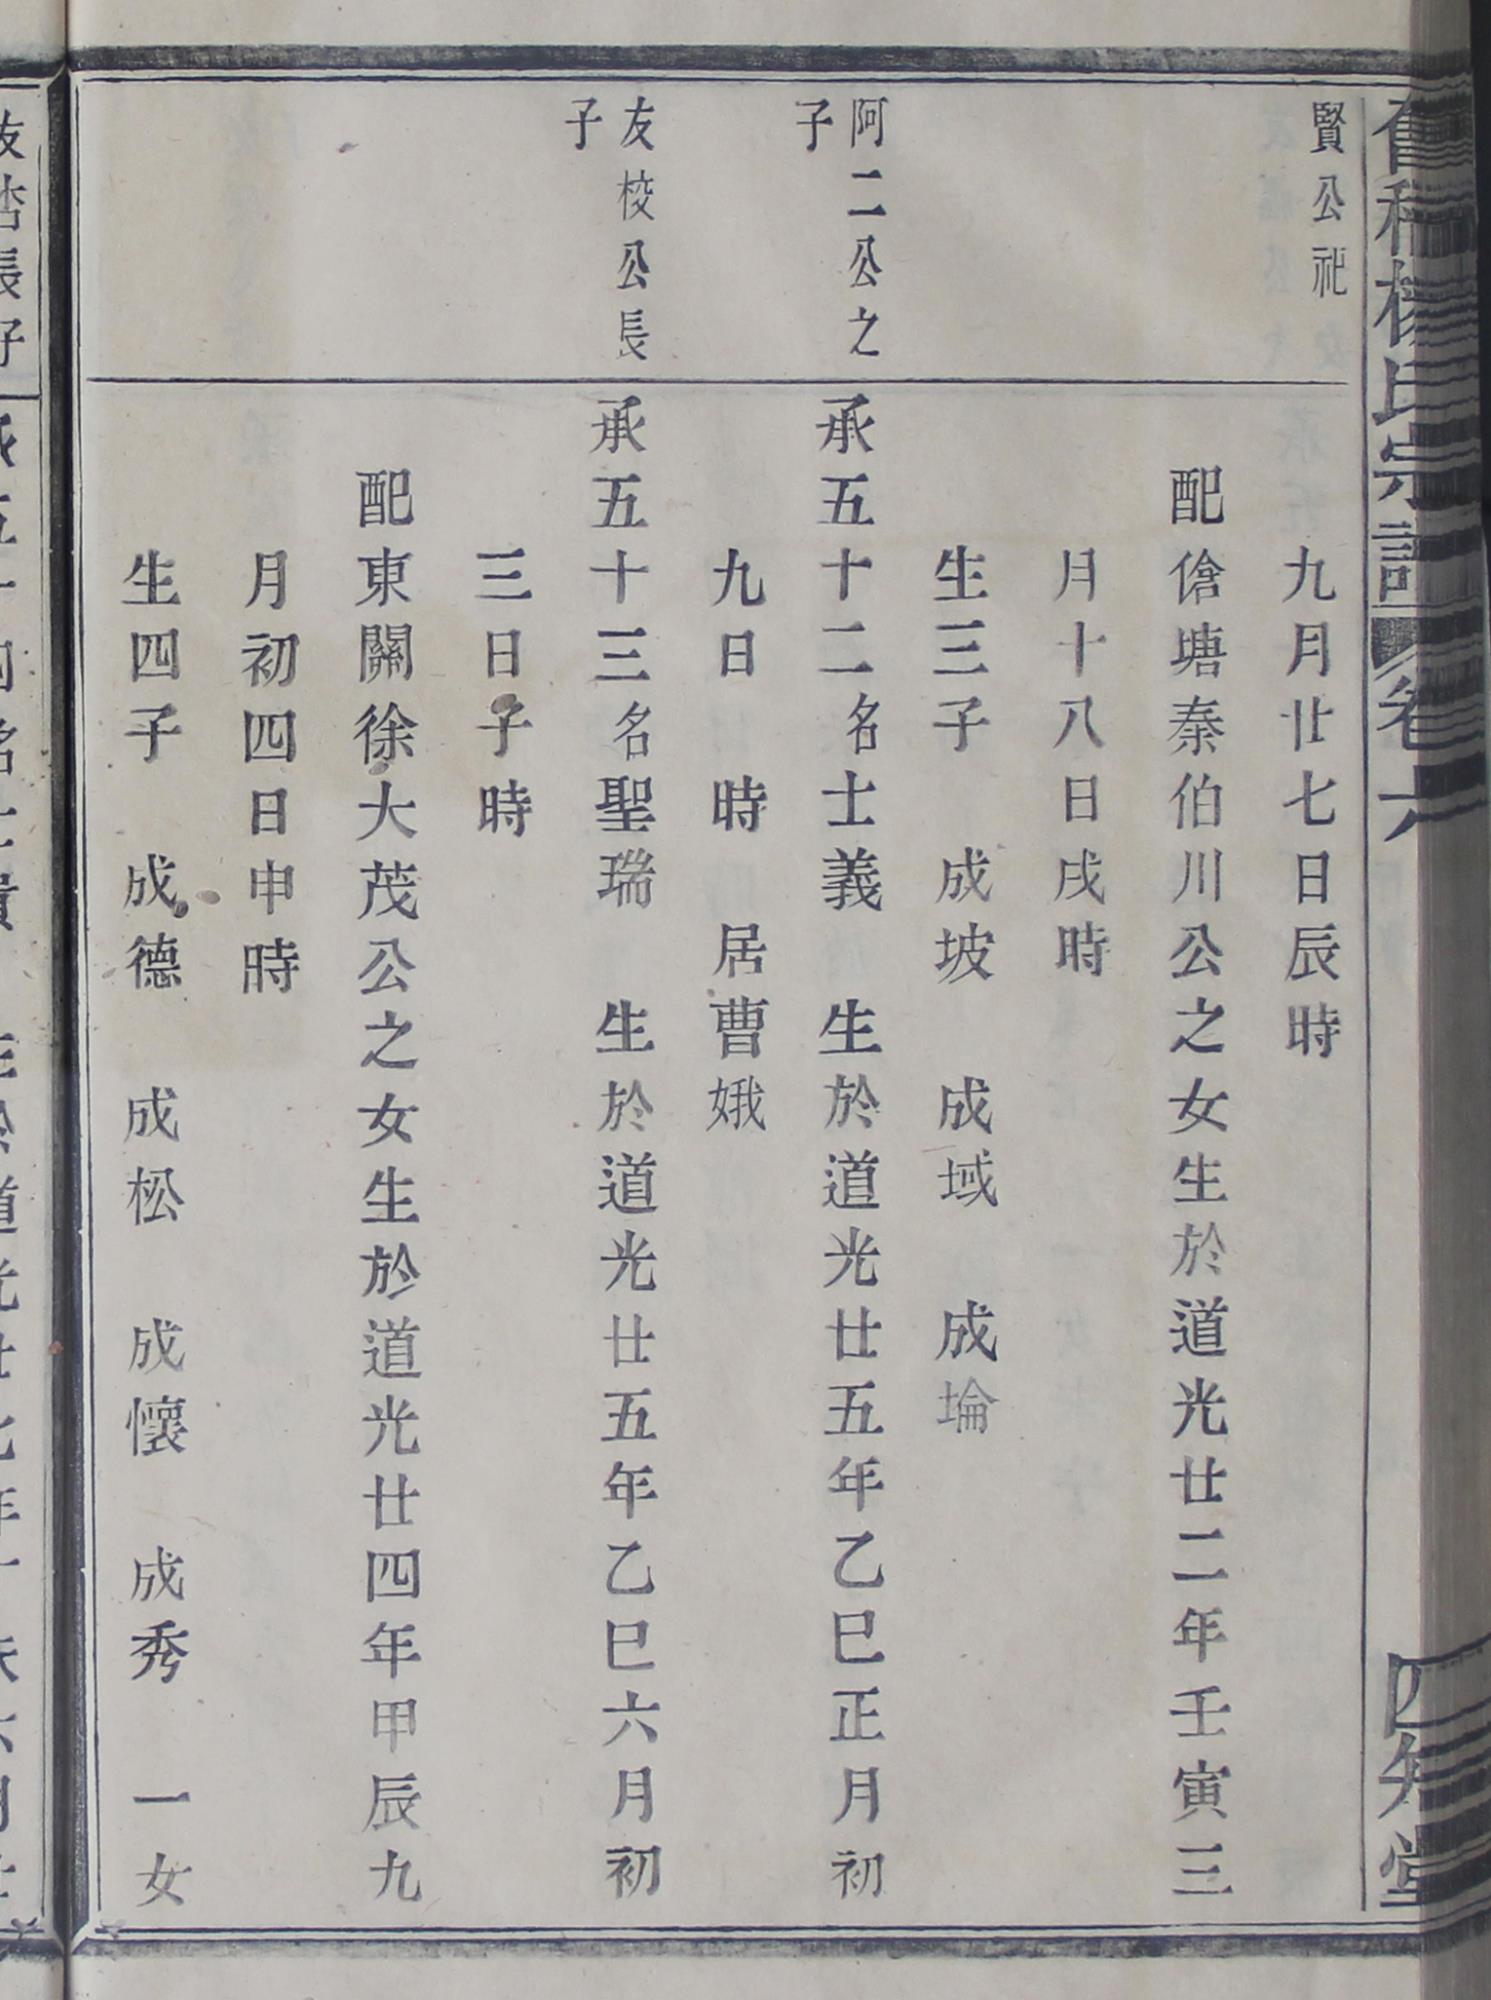 氏宗譜 卷六 四知堂
賢公祀
九月廿七日辰時
配傖塘秦伯川公之女生於道光廿二年壬寅三
月十八日戌時
生三子 成坡 成域 成埨
阿二公之
子
承五十二名士義 生於道光廿五年乙巳正月初
九日 時 居曹娥
友校公長
子
承五十三名聖瑞 生於道光廿五年乙巳六月初
三日子時
配東關徐大茂公之女生於道光廿四年甲辰九
月初四日申時
生四子 成德 成松 成懷 成秀 一女